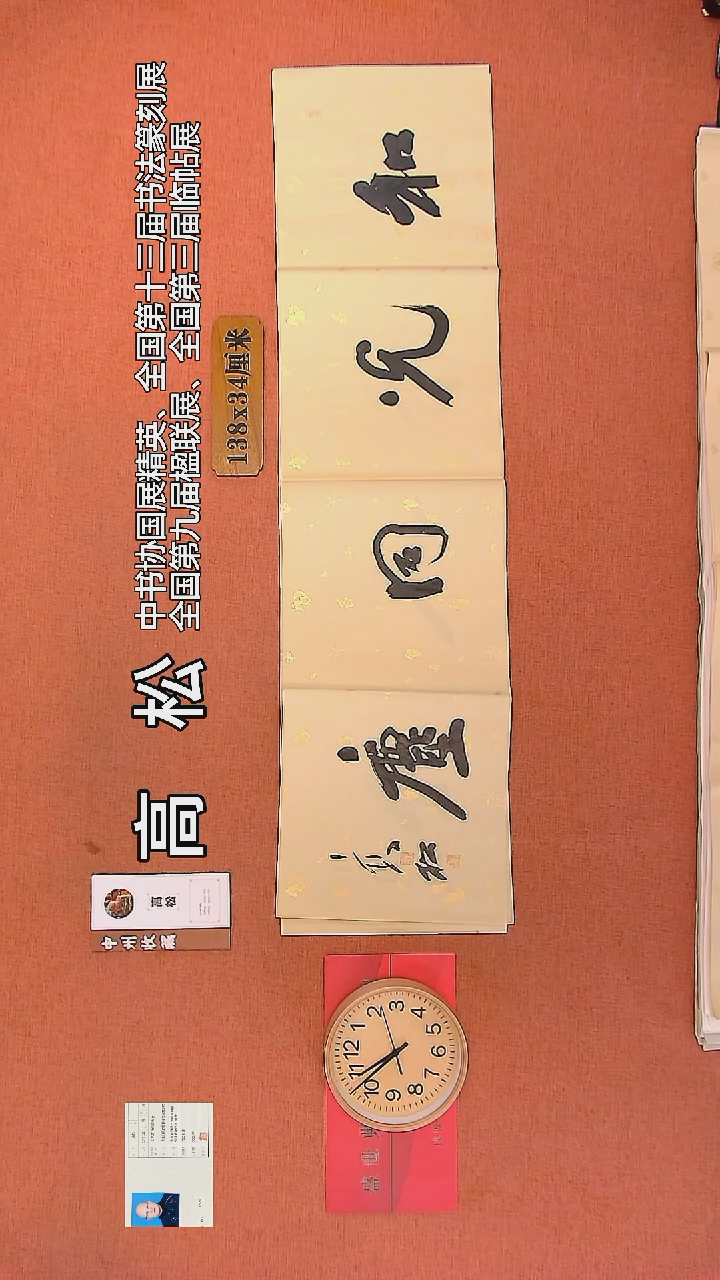 中书协国展精英、全国第十三届书法篆刻展
高 松
全国第九届楹联展、全国第三届临帖展
138x34厘米
和光同塵
高松
中州收藏
高松
盛世典
12
1
2
3
4
5
6
7
8
9
10
11